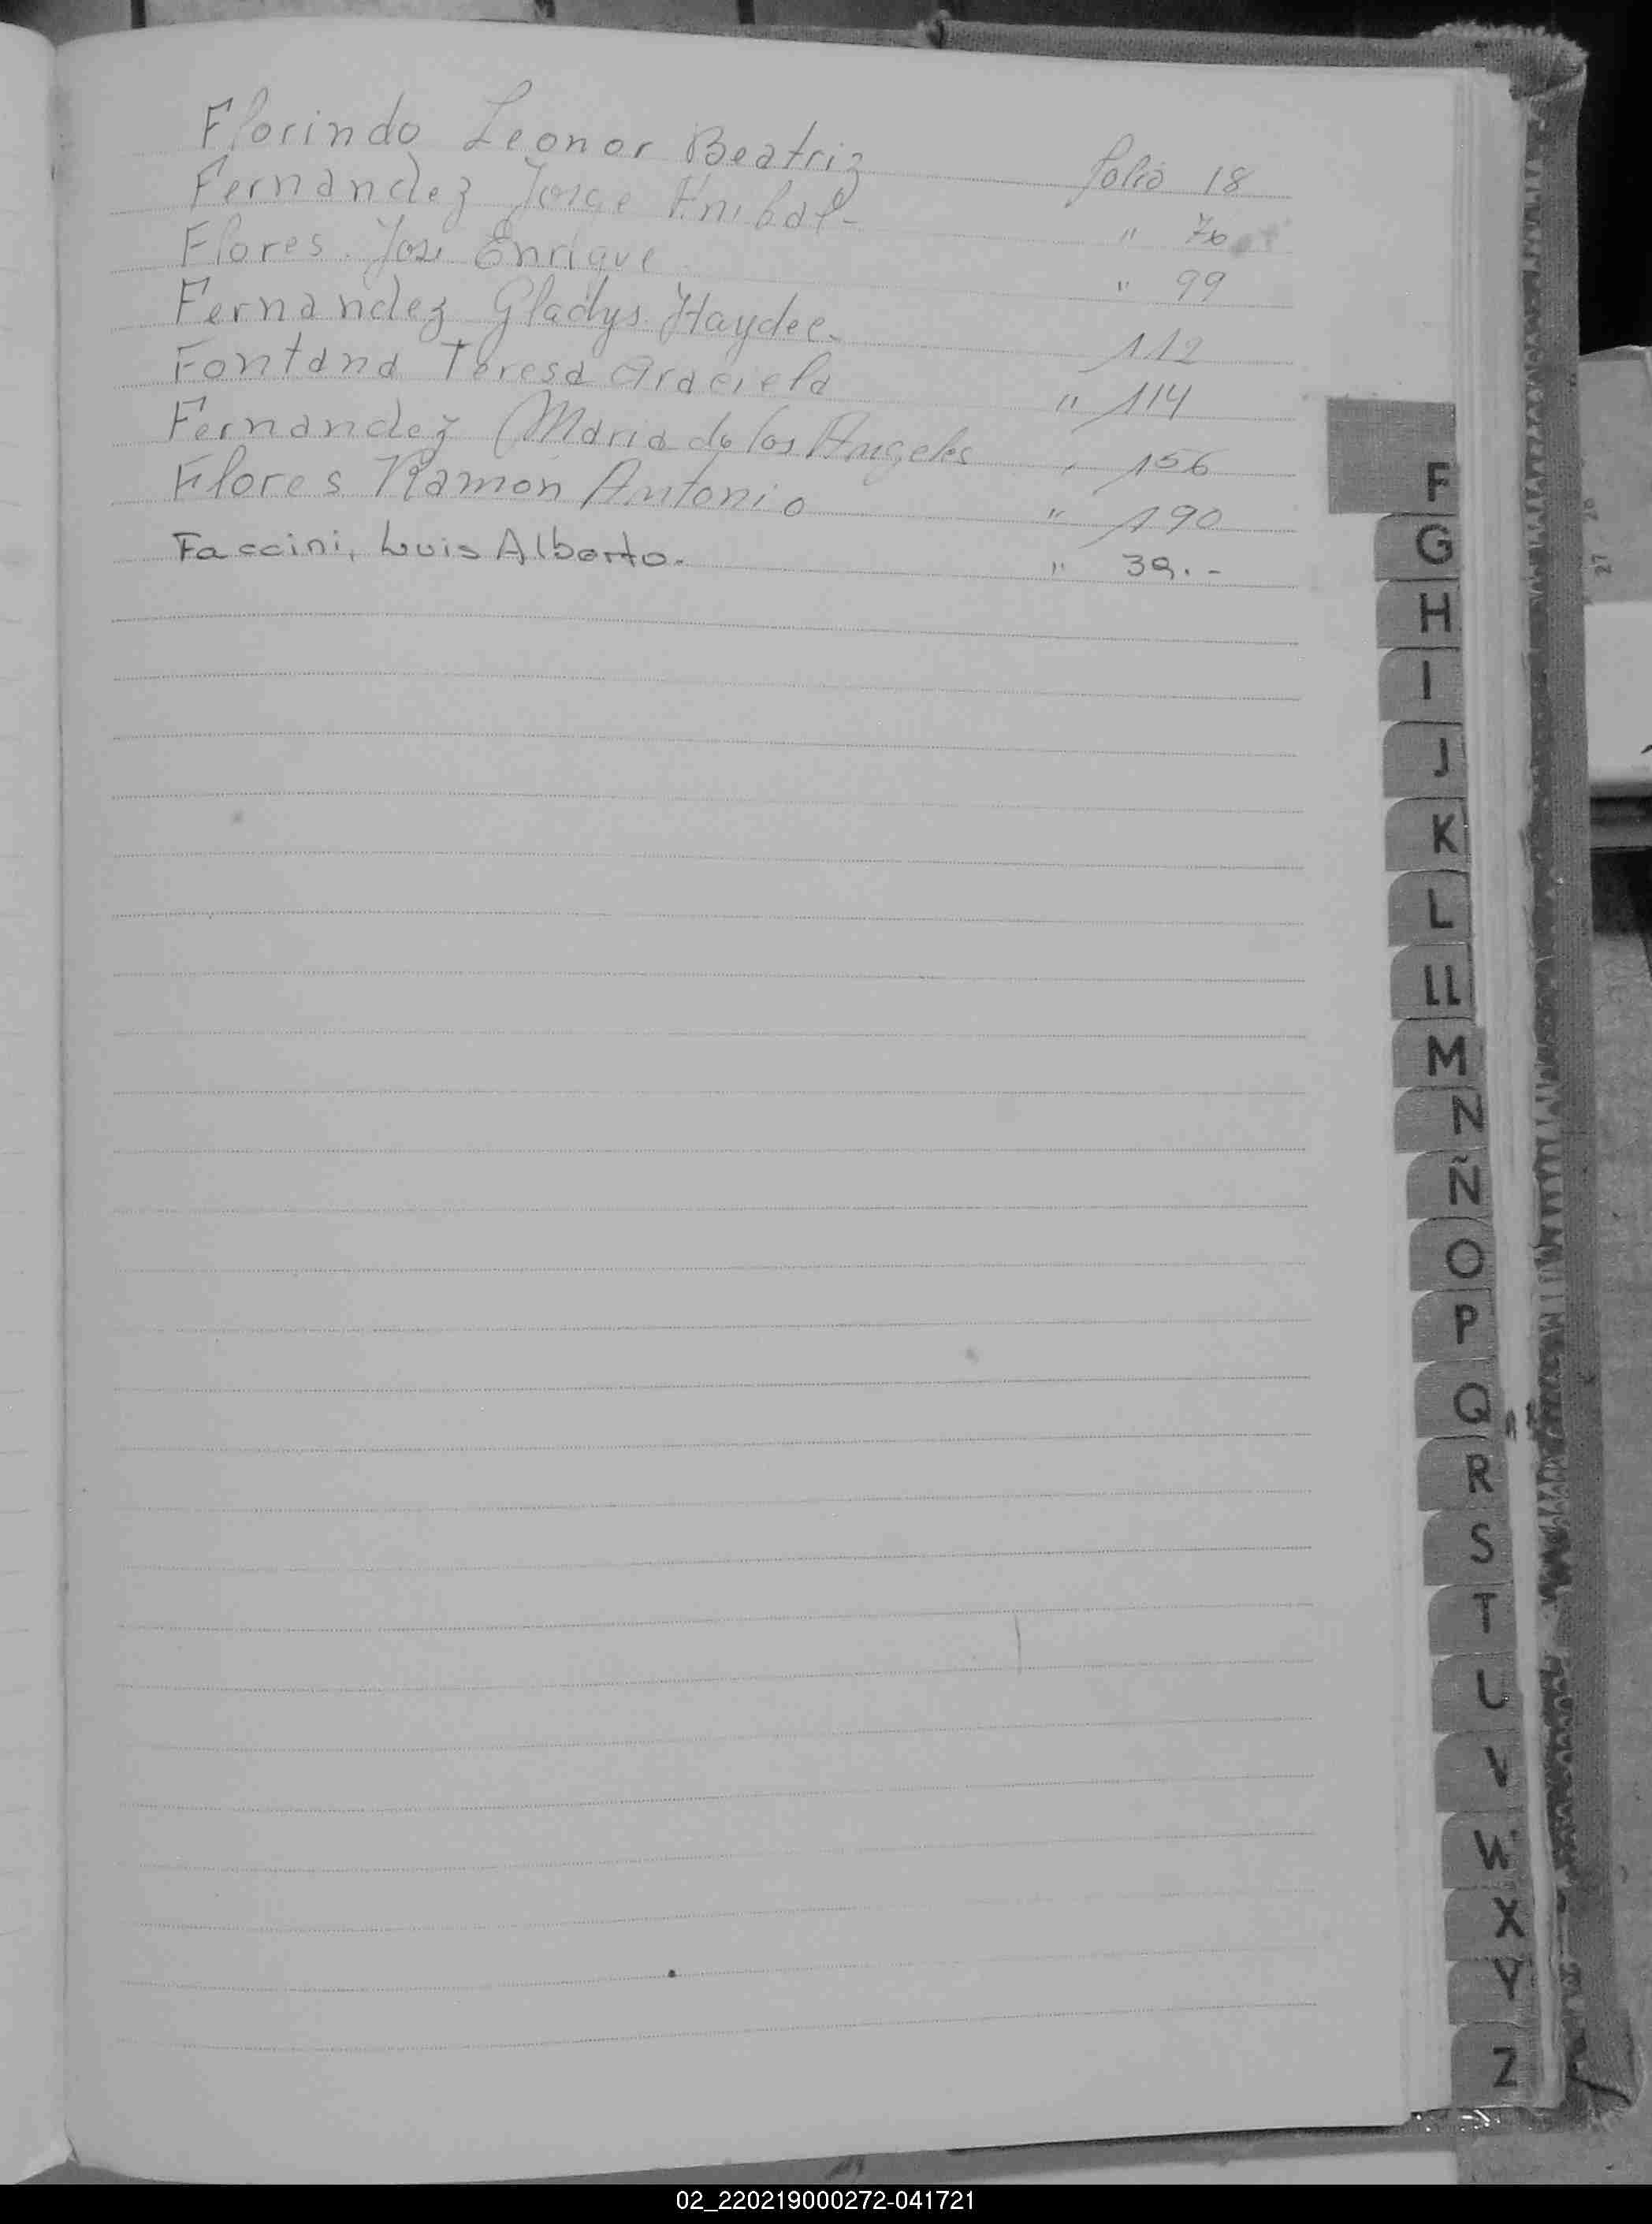 Florindo Leonor Beatriz folio 18
Fernandez Jorge Anibal - " 76
Flores Jose Enrique " 99
Fernandez Gladys Haydee. 112
Fontana Teresa Graciela " 114
Fernandez Maria de los Angeles " 156
Flores Ramon Antonio " 190
Faccini, Luis Alberto. " 39.-
F
G
H
I
J
K
L
LL
M
N
Ñ
O
P
Q
R
S
T
U
V
W
X
Y
Z
02_220219000272-041721